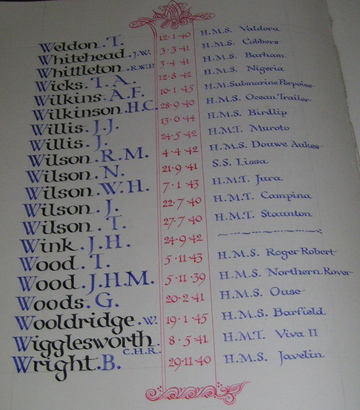 Weldon.T. 12·1·40 H.M.S. Valdora
Whitehead.J.W. 3·3·41 H.M.S. Cobbers
Whittleton.R.W.P. 3·4·41 H.M.S. Barham
Wicks.T.A. 12·8·42 H.M.S. Nigeria
Wilkins.A.F. 16·1·45 H.M.Submarine Porpoise
Wilkinson.H.C. 28·9·40 H.M.S. Ocean Trailer
Willis.J.J. 13·6·44 H.M.S. Birdlip
Willis.J. 24·5·42 H.M.T. Muroto
Wilson.R.M. 4·4·42 H.M.S. Douwe Aukes
Wilson.N. 21·9·41 S.S. Lissa
Wilson.W.H. 7·1·43 H.M.T. Jura
Wilson.J. 22·7·40 H.M.T. Campina
Wilson.T. 27·7·40 H.M.T. Staunton
Wink.J.H. 24·9·42
Wood.T. 5·11·43 H.M.S. Roger Robert
Wood.J.H.M. 5·11·39 H.M.S. Northern Rover
Woods.G. 20·2·41 H.M.S. Ouse
Wooldridge.W. 19·1·45 H.M.S. Barfield
Wigglesworth C.H.R. 8·5·41 H.M.T. Viva II
Wright.B. 29·11·40 H.M.S. Javelin